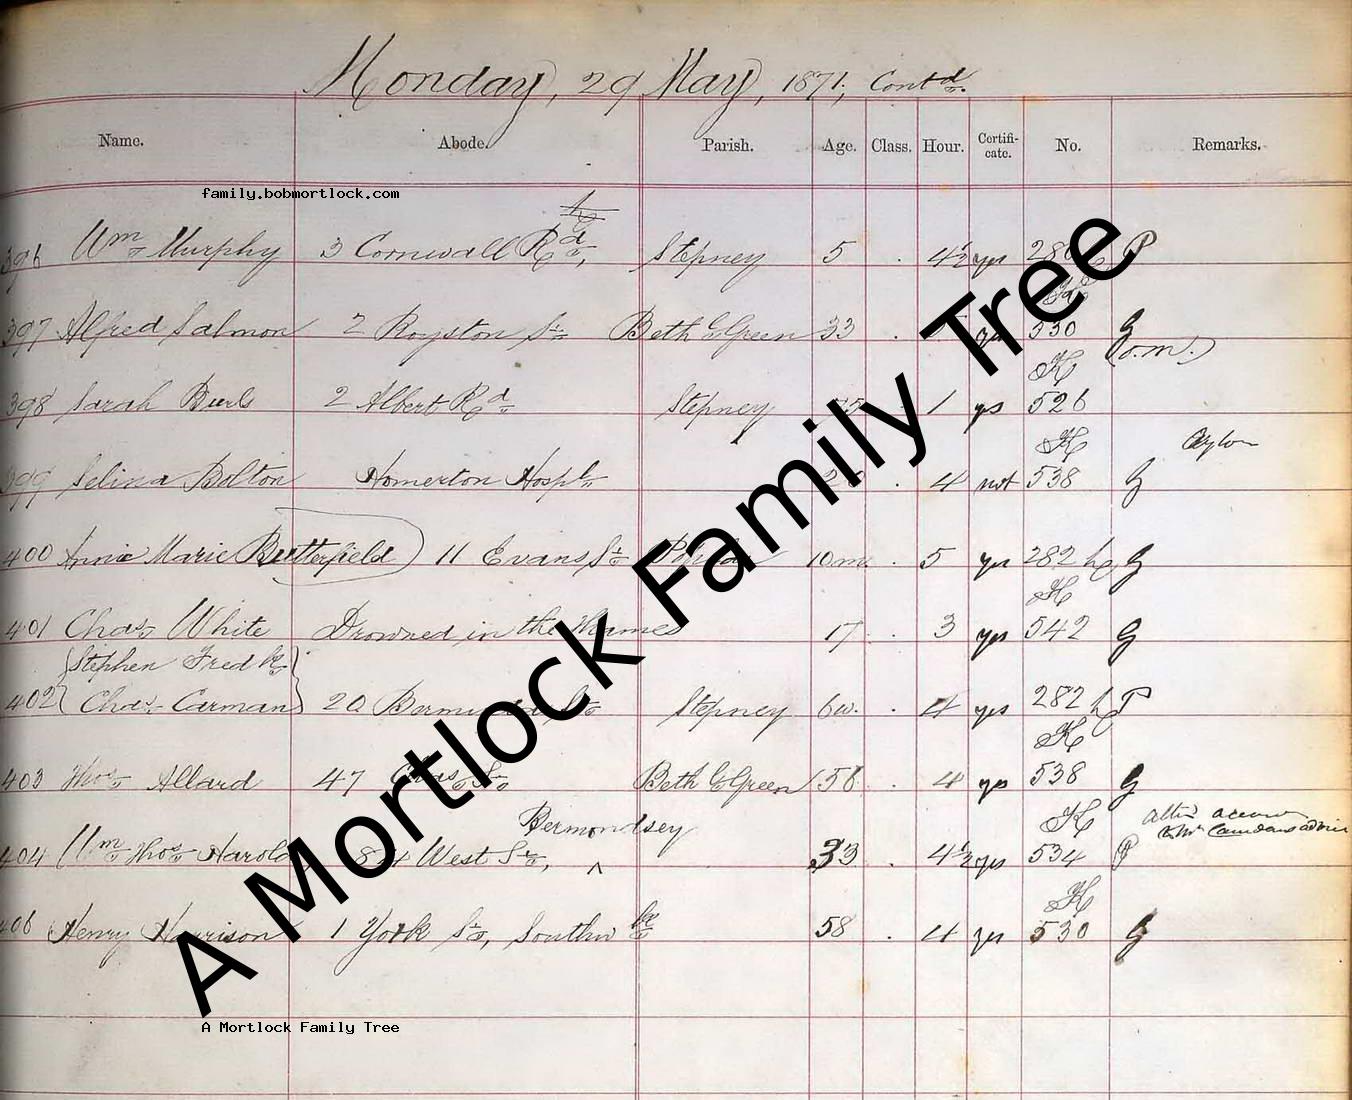 Monday, 29 May, 1871, Contd.
Name. Abode. Parish. Age. Class. Hour. Certifi-cate. No. Remarks.
family.bobmortlock.com
396 Wm Murphy 3 Cornwall Rd, Stepney 5 . 4½ yes P
397 Alfred Salmon 2 Royston St Beth G Green 33 . yes K 530 G
(o.m.)
398 Sarah 2 Albert Rd Stepney . 1 yes K 526
399 Selina Bolton Homerton Hospl . 4 not K 538 G
400 Annie Marie Butterfield 11 Evans St 10m . 5 yes 282 h G
401 Chas White Drowned in the Thames 17 . 3 yes K 542 G
Stephen Fredk
402 Chas Carman 20 St Stepney 6w. . 4 yes 282 h P
403 Thos Allard 47 Chas St Beth G Green 56 . 4 yes K 538 G
Bermondsey
404 Wm Thos Harold West St, ^ 33 . 4½ yes K 534 P
406 Henry Harrison 1 York St, Southwk 58 . 4 yes K 530 G
A Mortlock Family Tree
A Mortlock Family Tree